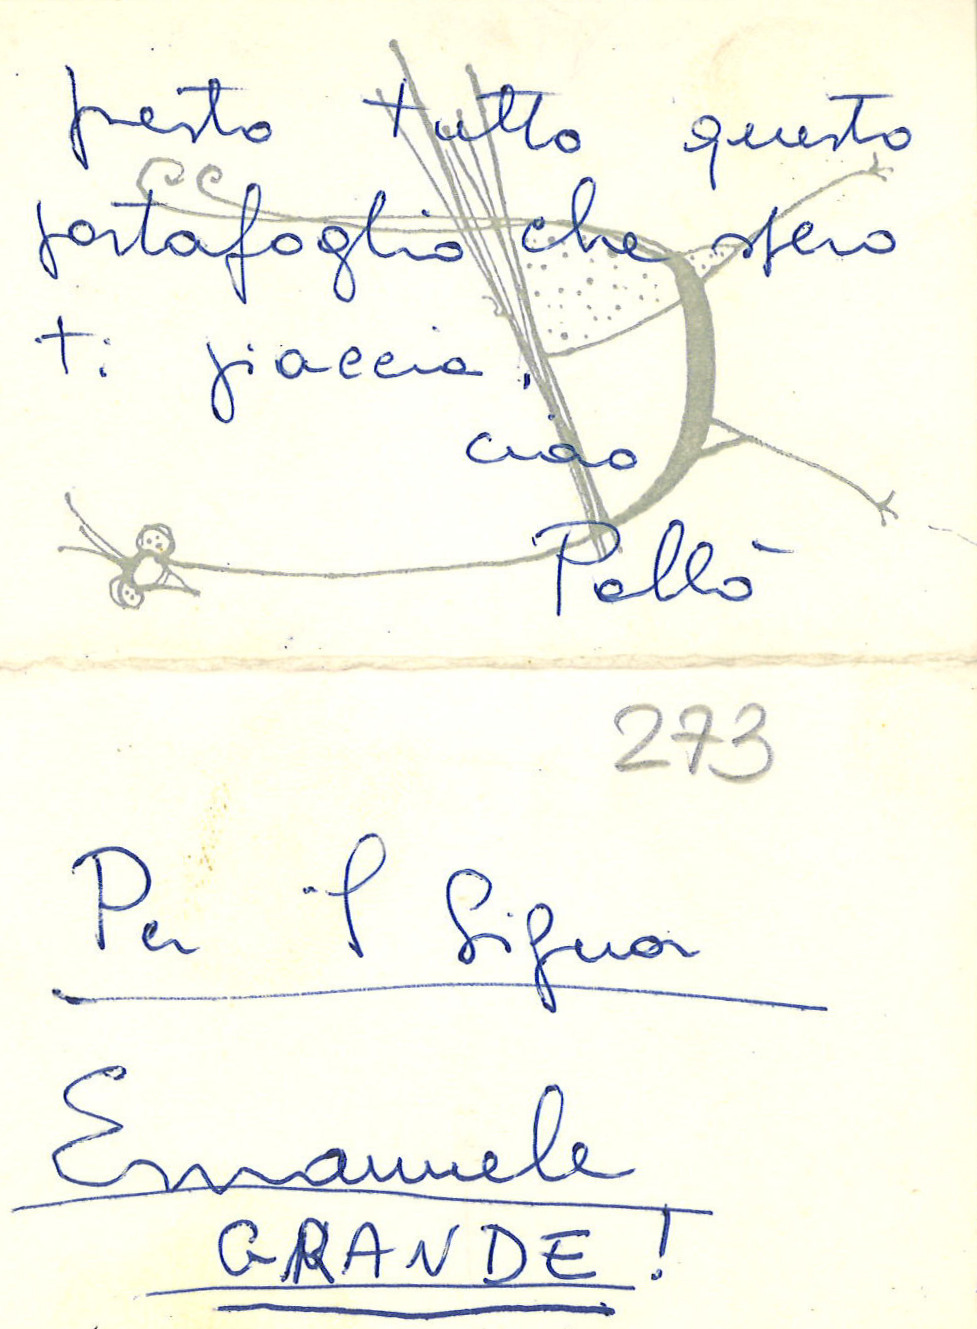 presto tutto questo
portafoglio che spero
ti piaccia!
ciao
Pallò
273
Per il Signor
Emanuele
GRANDE!